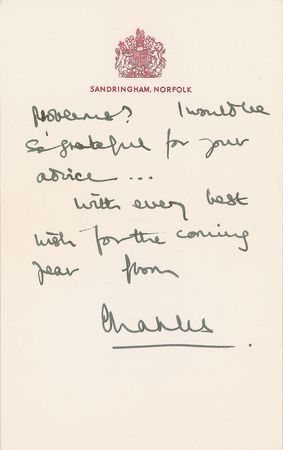 SANDRINGHAM, NORFOLK
problems? I would be
so grateful for your
advice ...
with every best
wish for the coming
year from
Charles